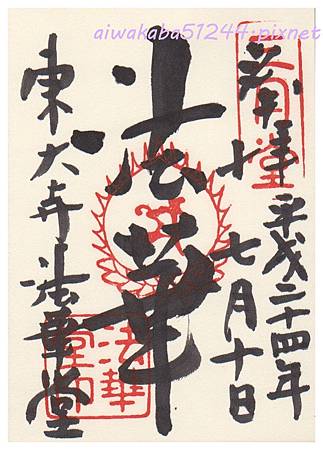 aiwakaba51244.pixnet
奉拝
平成二十四年
七月十日
法華
東大寺法華堂
三月堂
法華堂印